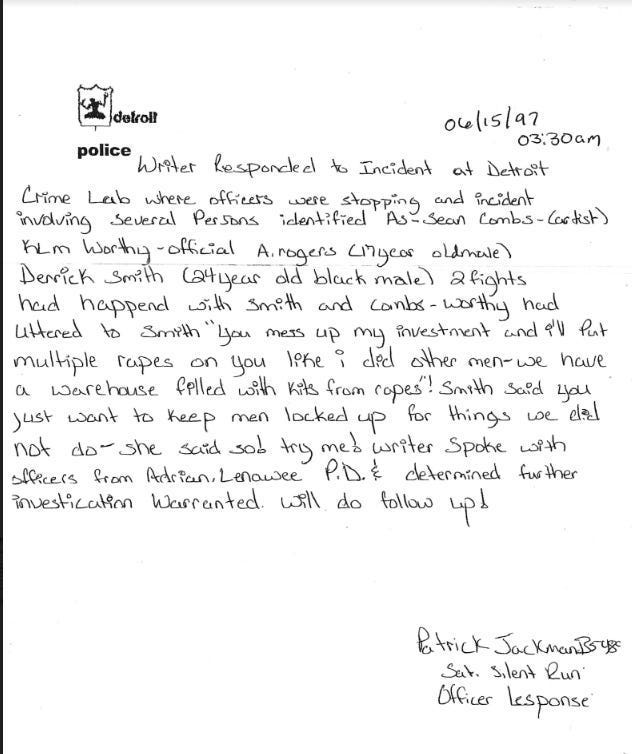 detroit
police
06/15/97
03:30am
Writer Responded to Incident at Detroit
Crime Lab where officers were stopping and incident
involving several Persons identified As-Sean Combs-(artist)
KLm Worthy-official A.rogers (17year oldmale)
Derrick Smith (24year old black male) 2 fights
had happend with Smith and Combs-worthy had
uttered to Smith "you mess up my investment and i'll Put
multiple rapes on you like i did other men-we have
a warehouse filled with kits from rapes"! Smith said you
just want to keep men locked up for things we did
not do- she said sob try me! Writer Spoke with
officers from Adrian, Lenawee P.D. & determined further
investication Warranted. will do follow up!
Patrick Jackman
Silent Run
Officer